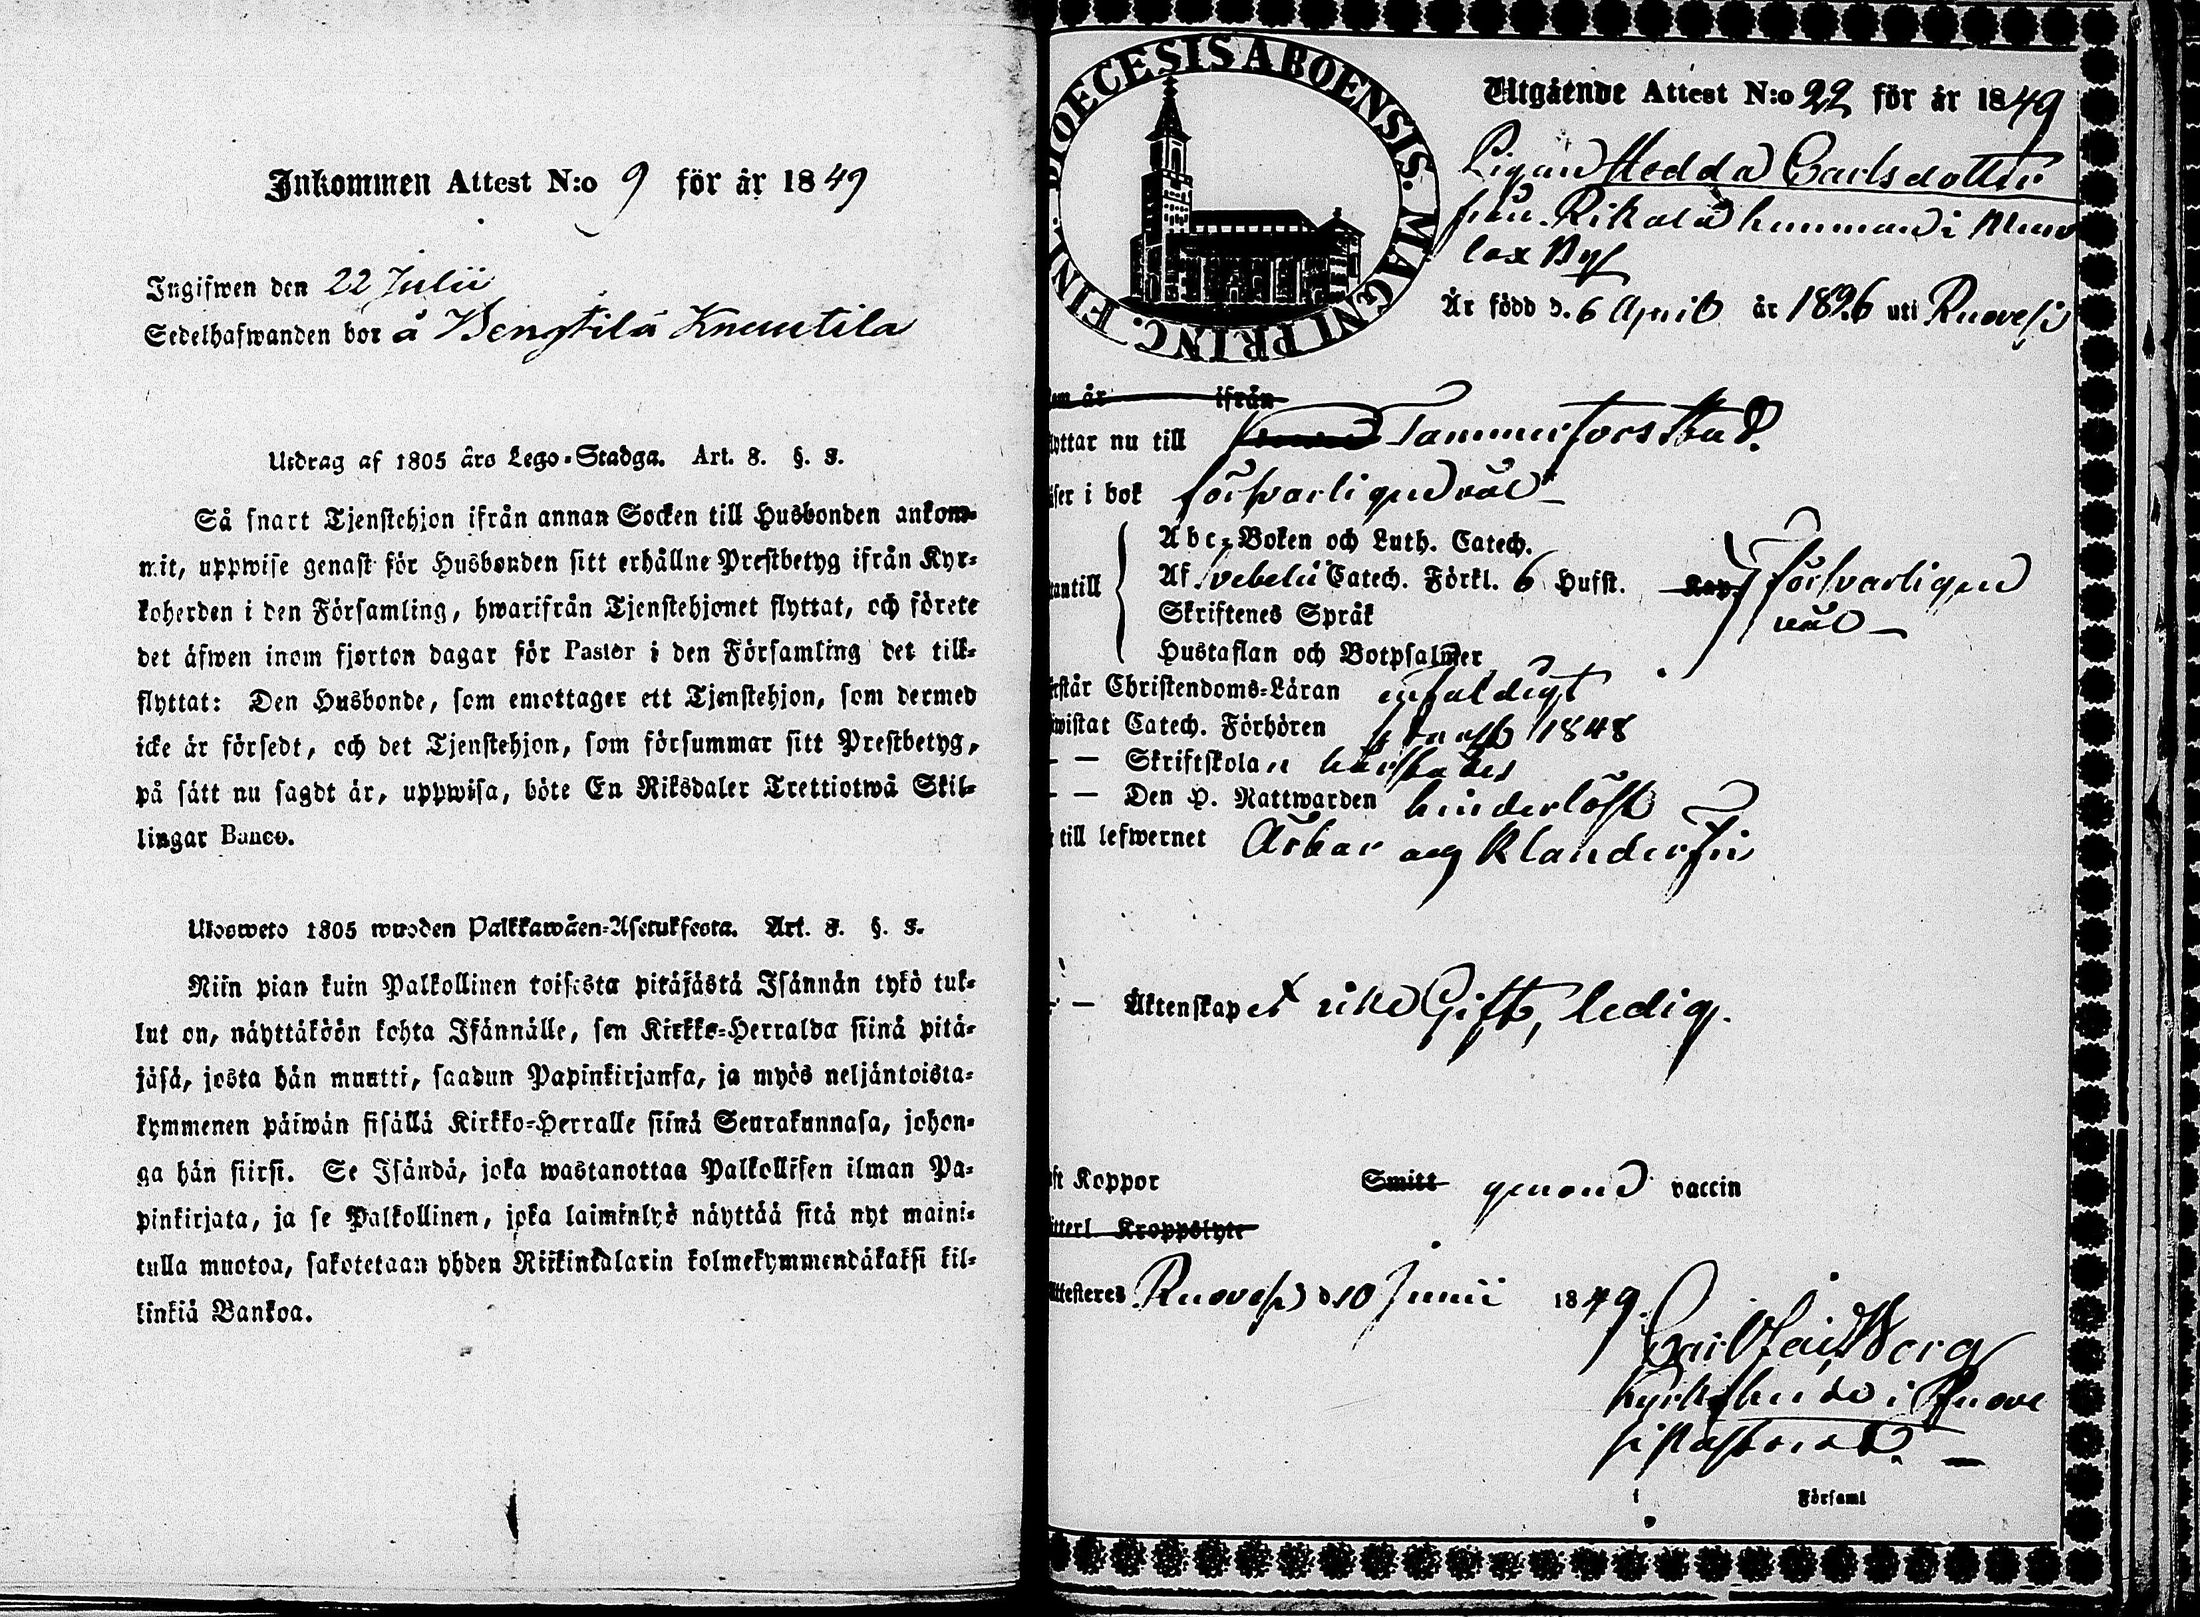 Inkommen Attest N:o 9 för år 1849
Ingifwen den 22 Julii
Sedelhafwanden bor å Bengtilä Knuutila
Utdrag af 1805 års Lego-Stadga. Art. 8. §. 8.
Så snart Tjenstehjon ifrån annan Socken till Husbonden ankom-
mit, uppwise genast för Husbonden sitt erhållne Prestbetyg ifrån Kyr-
koherden i den Församling, hwarifrån Tjenstehjonet flyttat, och förete
det äfwen inom fjorton dagar för Pastor i den Församling det till-
flyttat: Den Husbonde, som emottager ett Tjenstehjon, som dermed
icke är försedt, och det Tjenstehjon, som försummar sitt Prestbetyg,
på sätt nu sagdt är, uppwisa, böte En Riksdaler Trettiotwå Skil-
lingar Banco.
Ulosweto 1805 wuoden Palkkawäen-Asetuksesta. Art. 8. §. 8.
Niin pian kuin Palkollinen toisesta pitäjästä Isännän tykö tul-
lut on, näyttäköön kohta Isännälle, sen Kirkko-Herralda siinä pitä-
jäsä, josta hän muutti, saadun Papinkirjansa, ja myös neljäntoista-
kymmenen päiwän sisällä Kirkko-Herralle siinä Seurakunnasa, johon-
ga hän siirsi. Se Isändä, joka wastanottaa Palkollisen ilman Pa-
pinkirjata, ja se Palkollinen, joka laiminlyö näyttää sitä nyt maini-
tulla muotoa, sakotetaan yhden Riikinkalarin kolmekymmendäkaksi kil-
linkiä Bankoa.
DIOECESIS ABOENSIS. MAGNI PRINC. FINL.
Utgående Attest N:o 22 för år 1849
Pigan Hedda Carlsdotter
från Rikala hemman i Mun
lax By
Är född d. 6 April år 1826 uti Ruovesi
om år ifrån
yttar nu till Tammerfors stad.
äser i bok försvarligen väl
Abc-Boken och Luth. Catech.
Af Svebelii Catech. Förkl. 6 Hufst. Kap. försvarligen
utantill
Skriftenes Språk väl
Hustaflan och Botpsalmer
rstår Christendoms-Läran enfaldigt
wistat Catech. Förhören 1848
— — Skriftskolan
— — Den H. Nattwarden hinderlöst
till lefwernet Ärbar och Klanderfri
— — Äktenskapet icke Gift, ledig.
ft Koppor Smitt genom vaccin
tterl. Kroppslyte
Attesteres Ruovesi d. 10 Junii 1849.
Berg
Kyrkoherde i Ruove
si Pastorat.
i Församl